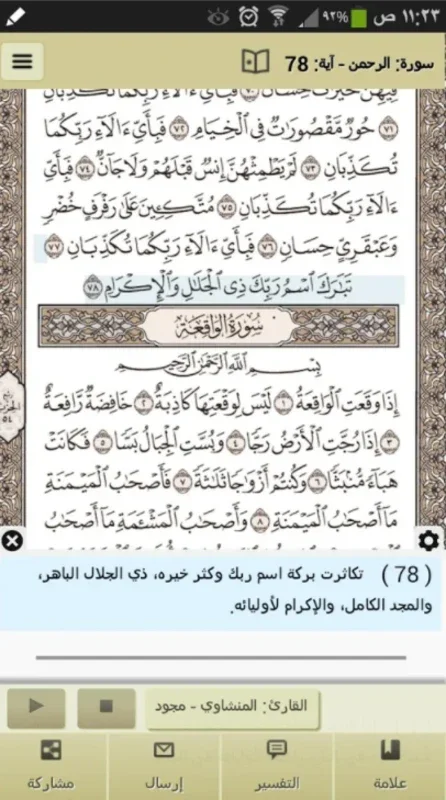 ١١:٢٣ ص ٩٢%
سورة: الرحمن - آية: 78
فِيهِنَّ خَيْرَاتٌ حِسَانٌ ٧٠ فَبِأَيِّ ءَالَآءِ رَبِّكُمَا تُكَذِّبَانِ
٧١ حُورٌ مَّقْصُورَاتٌ فِي الْخِيَامِ ٧٢ فَبِأَيِّ ءَالَآءِ رَبِّكُمَا
تُكَذِّبَانِ ٧٣ لَمْ يَطْمِثْهُنَّ إِنسٌ قَبْلَهُمْ وَلَا جَانٌّ ٧٤ فَبِأَيِّ
ءَالَآءِ رَبِّكُمَا تُكَذِّبَانِ ٧٥ مُتَّكِئِينَ عَلَى رَفْرَفٍ خُضْرٍ
وَعَبْقَرِيٍّ حِسَانٍ ٧٦ فَبِأَيِّ ءَالَآءِ رَبِّكُمَا تُكَذِّبَانِ ٧٧
تَبَارَكَ اسْمُ رَبِّكَ ذِي الْجَلَالِ وَالْإِكْرَامِ ٧٨
سُورَةُ الْوَاقِعَةِ
بِسْمِ اللَّهِ الرَّحْمَنِ الرَّحِيمِ
إِذَا وَقَعَتِ الْوَاقِعَةُ ١ لَيْسَ لِوَقْعَتِهَا كَاذِبَةٌ ٢ خَافِضَةٌ رَّافِعَةٌ
٣ إِذَا رُجَّتِ الْأَرْضُ رَجًّا ٤ وَبُسَّتِ الْجِبَالُ بَسًّا ٥ فَكَانَتْ
هَبَاءً مُّنبَثًّا ٦ وَكُنتُمْ أَزْوَاجًا ثَلَاثَةً ٧ فَأَصْحَابُ الْمَيْمَنَةِ
مَا أَصْحَابُ الْمَيْمَنَةِ ٨ وَأَصْحَابُ الْمَشْئَمَةِ مَا أَصْحَابُ
(78) تكاثرت بركة اسم ربك وكثر خيره، ذي الجلال الباهر،
والمجد الكامل، والإكرام لأوليائه.
القارئ: المنشاوي - مجود
علامة
التفسير
إرسال
مشاركة